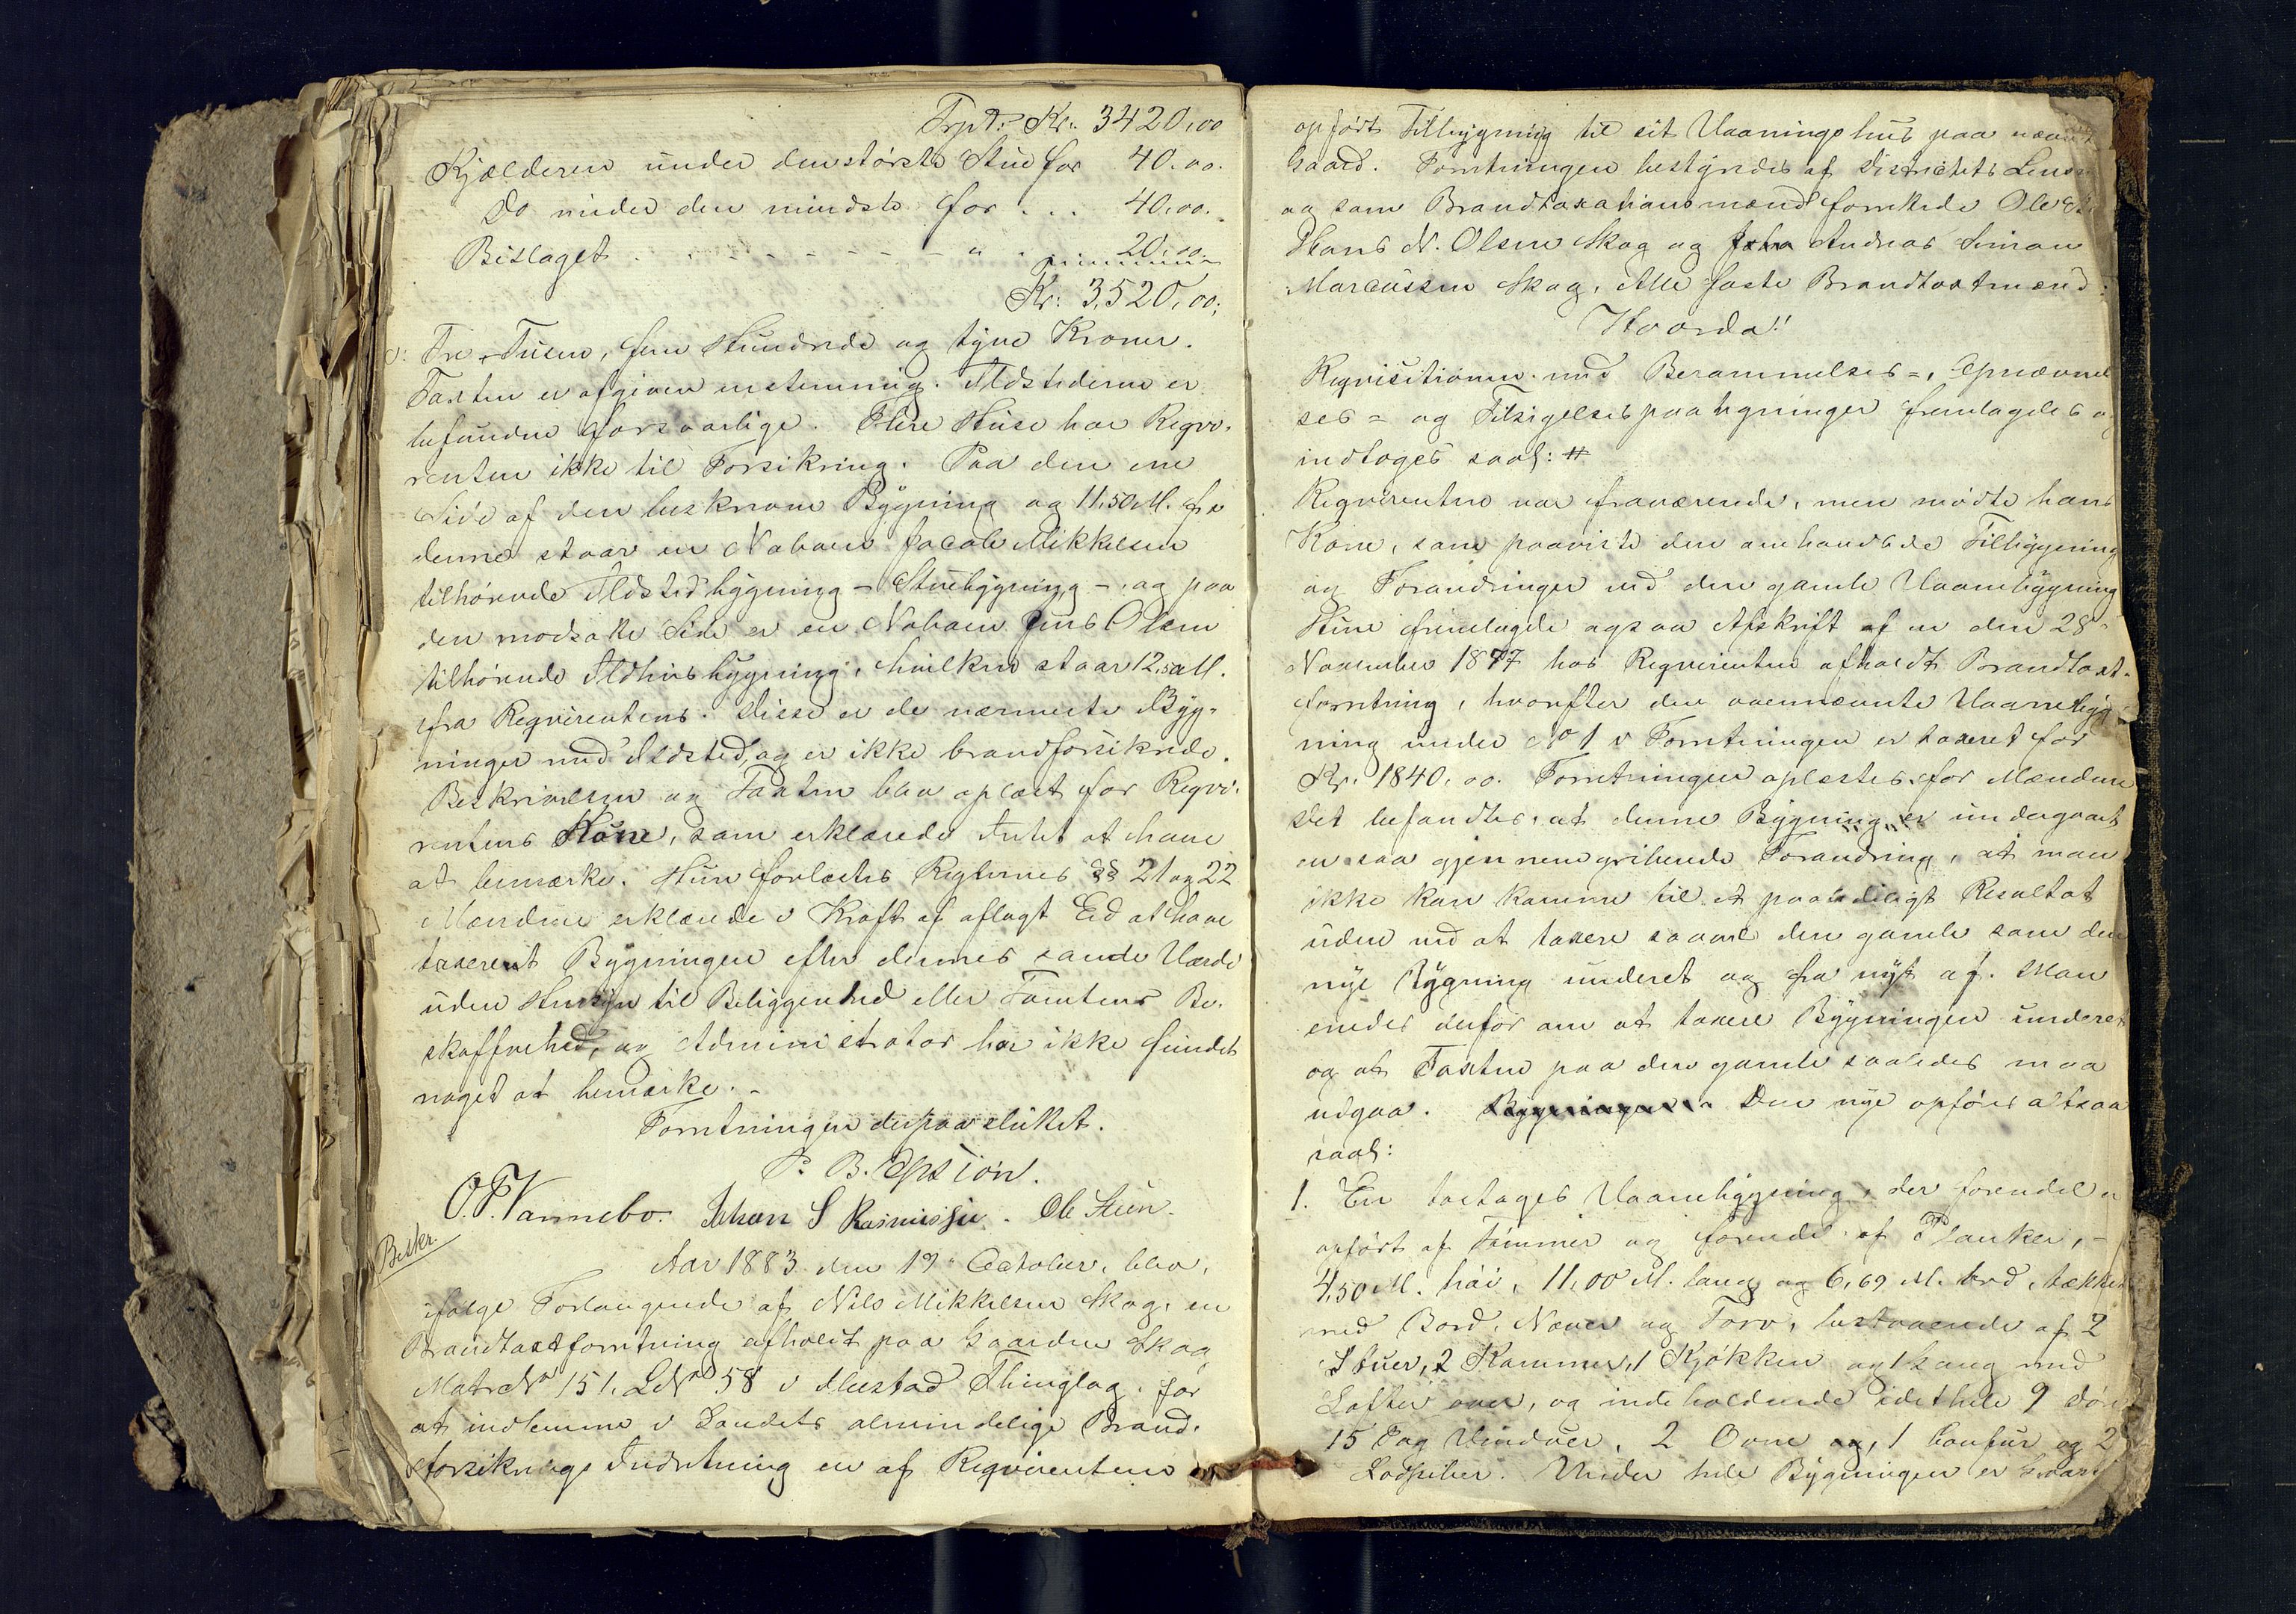 Trpt: Kr. 3420,00
Kjælderen under den største Stue for 40.00.
Do under den mindste for . . . 40,00.
Bislaget . . - - - - - " . . 20.00.
Kr: 3,520,00.
Tre Tusen, fem Hundrede og tyve Kroner.
Taxten er afgiven enstemmig. Ildstederne er
befundne forsvarlige. Flere Huse har Reqvi-
renten ikke til Forsikring. Paa den ene
Side af den beskrevne Bygning og 11,50 M. fra
denne staar en Naboen Jacob Mikkelsen
tilhørende Ildstedbygning - Stuebygning -, og paa
den modsatte Side er en Naboen Jens Olsen
tilhørende Ildhusbygning, hvilken staar 12,50 M.
fra Reqvirentens. Disse er de nærmeste Byg-
ninger med Ildsted, og er ikke brandforsikrede.
Beskrivelsen og Taxten blev oplæst for Reqvi-
rentens Kone, som erklærede Intet at have
at bemærke. Hun forlæstes Reglernes §§ 21 og 22
Mændene erklærede i Kraft af aflagt Ed at have
taxeret Bygningen efter dennes sande Værdi
uden Hensyn til Beliggenhed eller Tomtens Be-
skaffenhed, og Administrator har ikke fundet
noget at bemærke. -
Forretningen derpaa sluttet.
P. B. Epsion.
O. P. Vannebo. Johan S Rasmussen. Ole Steen.
Beskr.
Aar 1883 den 19 October, blev,
ifølge Forlangende af Nils Mikkelsen Skog, en
Brandtaxtforretning afholdt paa Gaarden Skog
Matr No 151, L No 58 i Thinglag, for
at indlemme i Landets almindelige Brand-
forsikrings Indretning en af Reqvirenten
opført Tilbygning til sit Vaaningshus paa nævnte
Gaard. Forretningen bestyredes af Districtets Lens
og som Brandtaxationsmænd fremkede Ole
Hans N. Olsen Skog og Andreas Simon
Marcussen Skog, Alle faste Brandtaxtmænd:
Hvorda!!
Reqvisitionen med Berammelses=, Opnævnel
ses= og Tilsigelsespaategninger fremlagdes og
indtages saal: #
Reqvirenten var fraværende, men mødte hans
Kone, som paaviste den omhandlede Tilbygning
og Forandringer ved den gamle Vaanebygning
Hun fremlagde ogsaa Afskrift af en den 28-
November 1877 hos Reqvirenten afholdt Brandtaxt-
forretning, hvorefter den ovennævnte Vaanebyg
ning under No 1 i Forretningen er taxeret for
Kr. 1840,00. Forretningen oplæstes for Mændene
Det befandtes, at denne Bygning er undergaaet
en saa gjennemgribende Forandring, at man
ikke kan komme til et paalideligt Resultat
uden ved at taxere saavel den gamle som den
nye Bygning underet og fra nyt af. Man
enedes derfor om at taxere Bygningen underet
og at Taxten paa den gamle saaledes maa
udgaa. Den nye opføres altsaa
saal:
1. En toetages Vaanebygning, der forendel er
opført af Tømmer og forendel af Planker, -
4,50 M. høi, 11,00 M. lang og 6,69 M. bred, tækket
med Bord, Næver og Torv, bestaaende af 2
Stuer, 2 Kammer, 1 Kjøkken og 1 Gang med
Lofter over, og indeholdende idethele 9 Døre
15 Fag Vinduer, 2 Ovne og, 1 Comfur og 2
Lodpiber. Under hele Bygningen er Graast